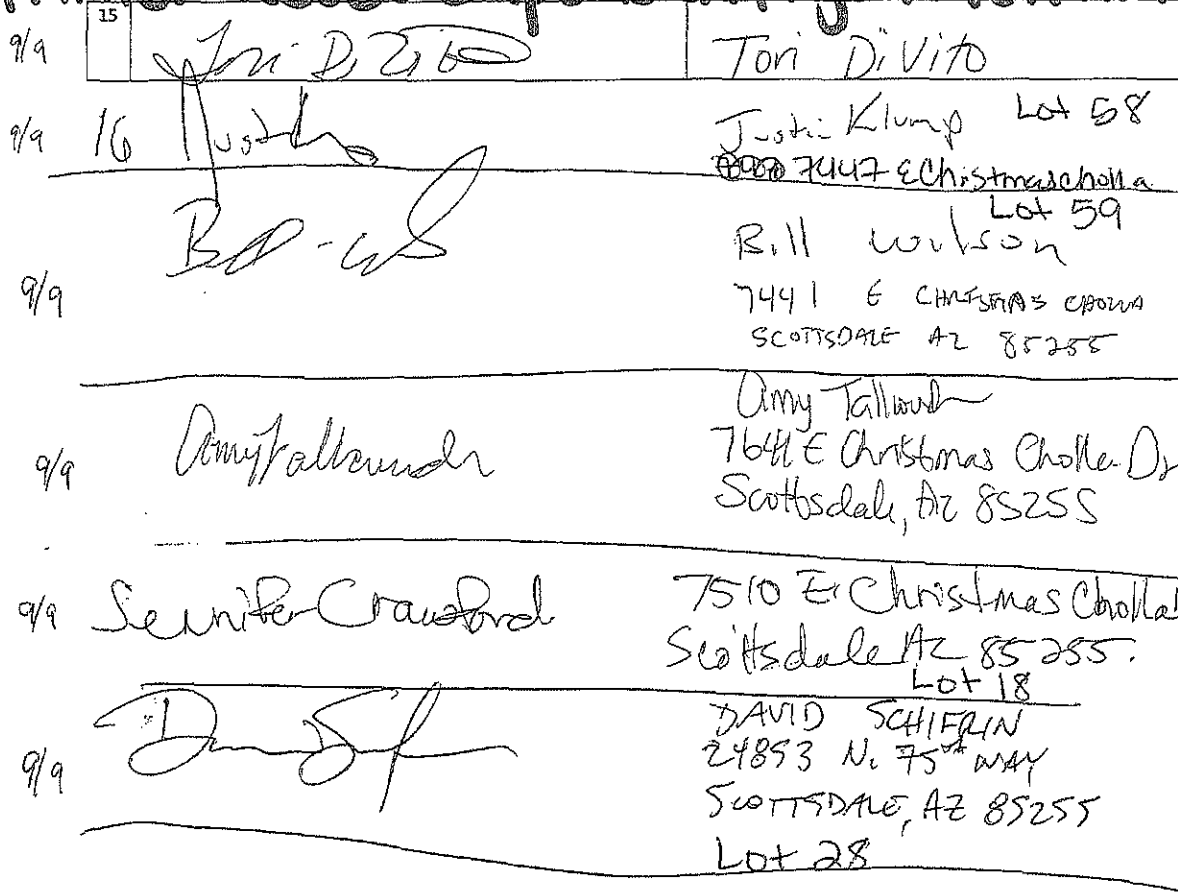 15
9/9 Tori DiVito Tori DiVito
9/9 16 Justin Justin Klump Lot 58
7447 E Christmas cholla
Lot 59
Bill Wilson
9/9
7441 E CHRISTMAS CHOLLA
SCOTTSDALE AZ 85255
Amy Tallwush
9/9 7641 E Christmas Cholla Dr
Scottsdale, Az 85255
9/9 Jennifer Crawford 7510 E Christmas Cholla
Scottsdale Az 85255.
Lot 18
DAVID SCHIFRIN
9/9 24853 N. 75th WAY
SCOTTSDALE, AZ 85255
Lot 28